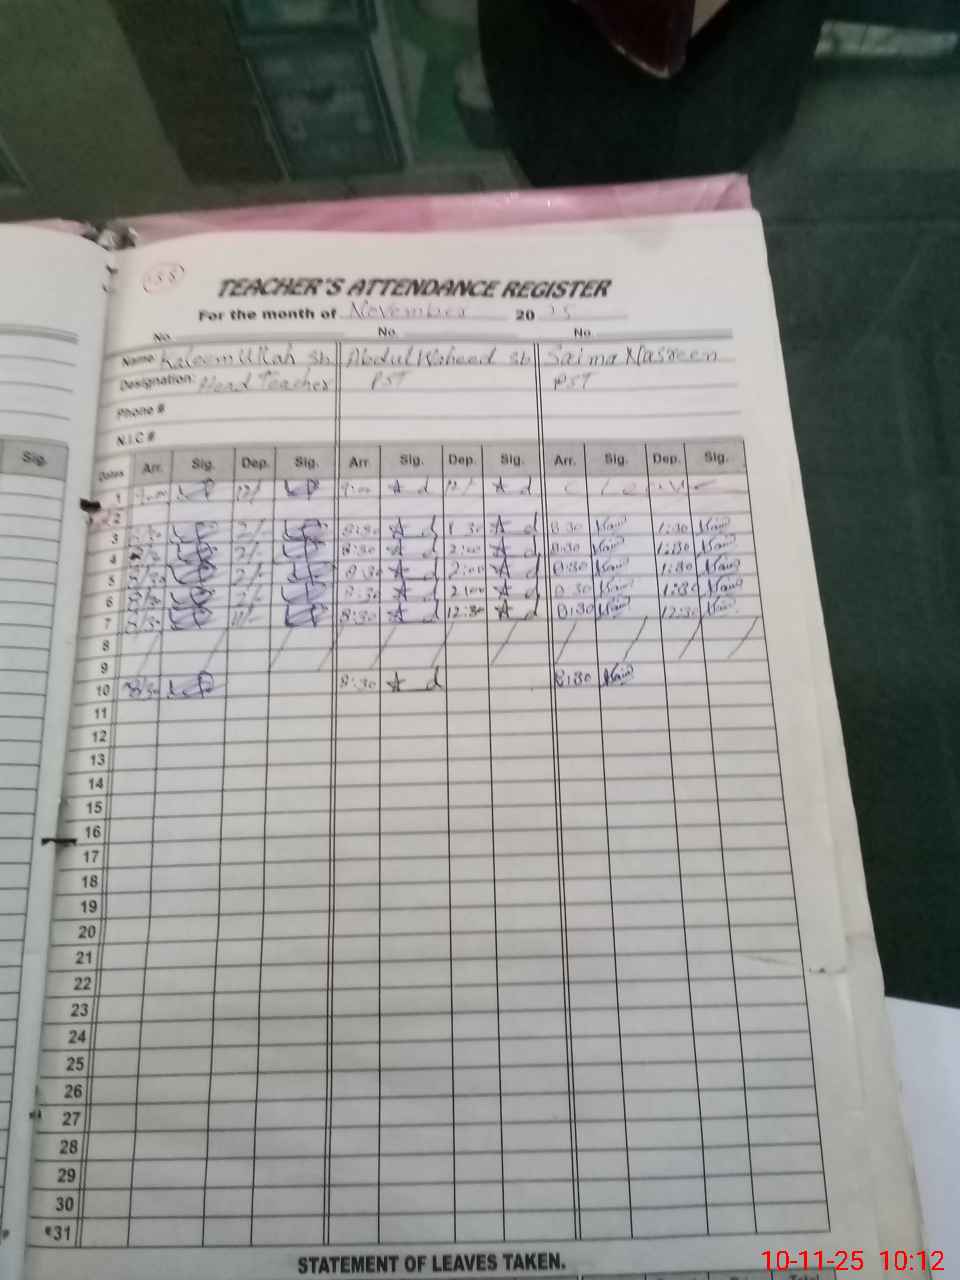 Sig.
TEACHER'S ATTENDANCE REGISTER
For the month of November 20 25
No. No. No.
Name: Kaleem Ullah Sb Abdul Waheed Sb Saima Nasreen
Designation: Head Teacher PST PST
Phone #
N.I.C #
Dates Arr. Sig. Dep. Sig. Arr. Sig. Dep. Sig. Arr. Sig. Dep. Sig.
1 9:00 12/ 9:00 12/ C Leave
2
3 8/30 2/- 8:30 1:30 8:30 1:30
4 8/30 2/- 8:30 2:00 8:30 1:30
5 8/30 2/- 8:30 2:00 8:30 1:30
6 8/30 2/- 8:30 2:00 8:30 1:30
7 8/30 8:30 12:30 8:30 12:30
8
9
10 8/30 8:30 8:30
11
12
13
14
15
16
17
18
19
20
21
22
23
24
25
26
27
28
29
30
31
STATEMENT OF LEAVES TAKEN.
10-11-25 10:12